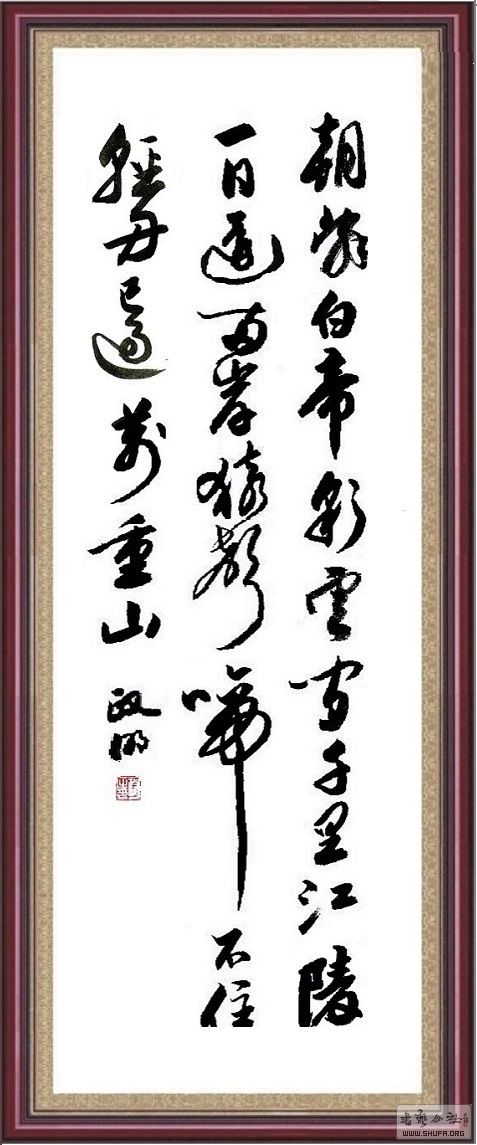 朝辞白帝彩云间千里江陵
一日还两岸猿声啼不住
轻舟已过万重山
政明
WWW.SHUFA.ORG